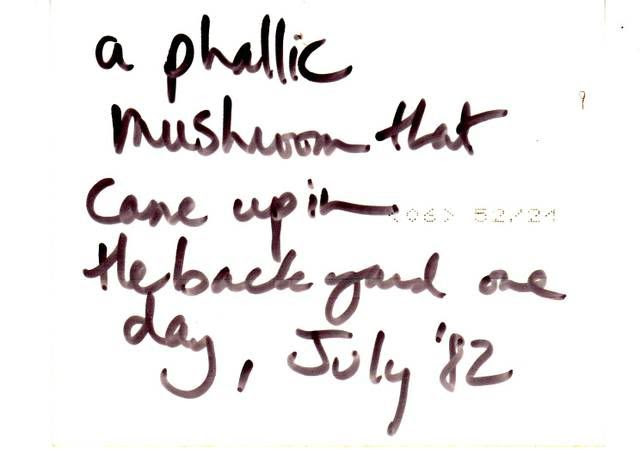 a phallic
mushroom that
came up in
(06) 52/24
the back yard one
day, July '82